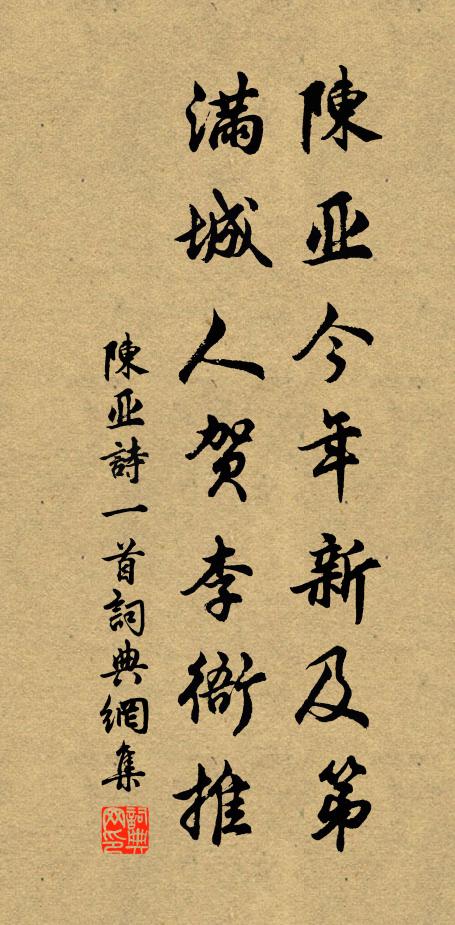 陳亚今年新及第
滿城人贺李衙推
陳亚詩一首詞典網集
詞典
网印